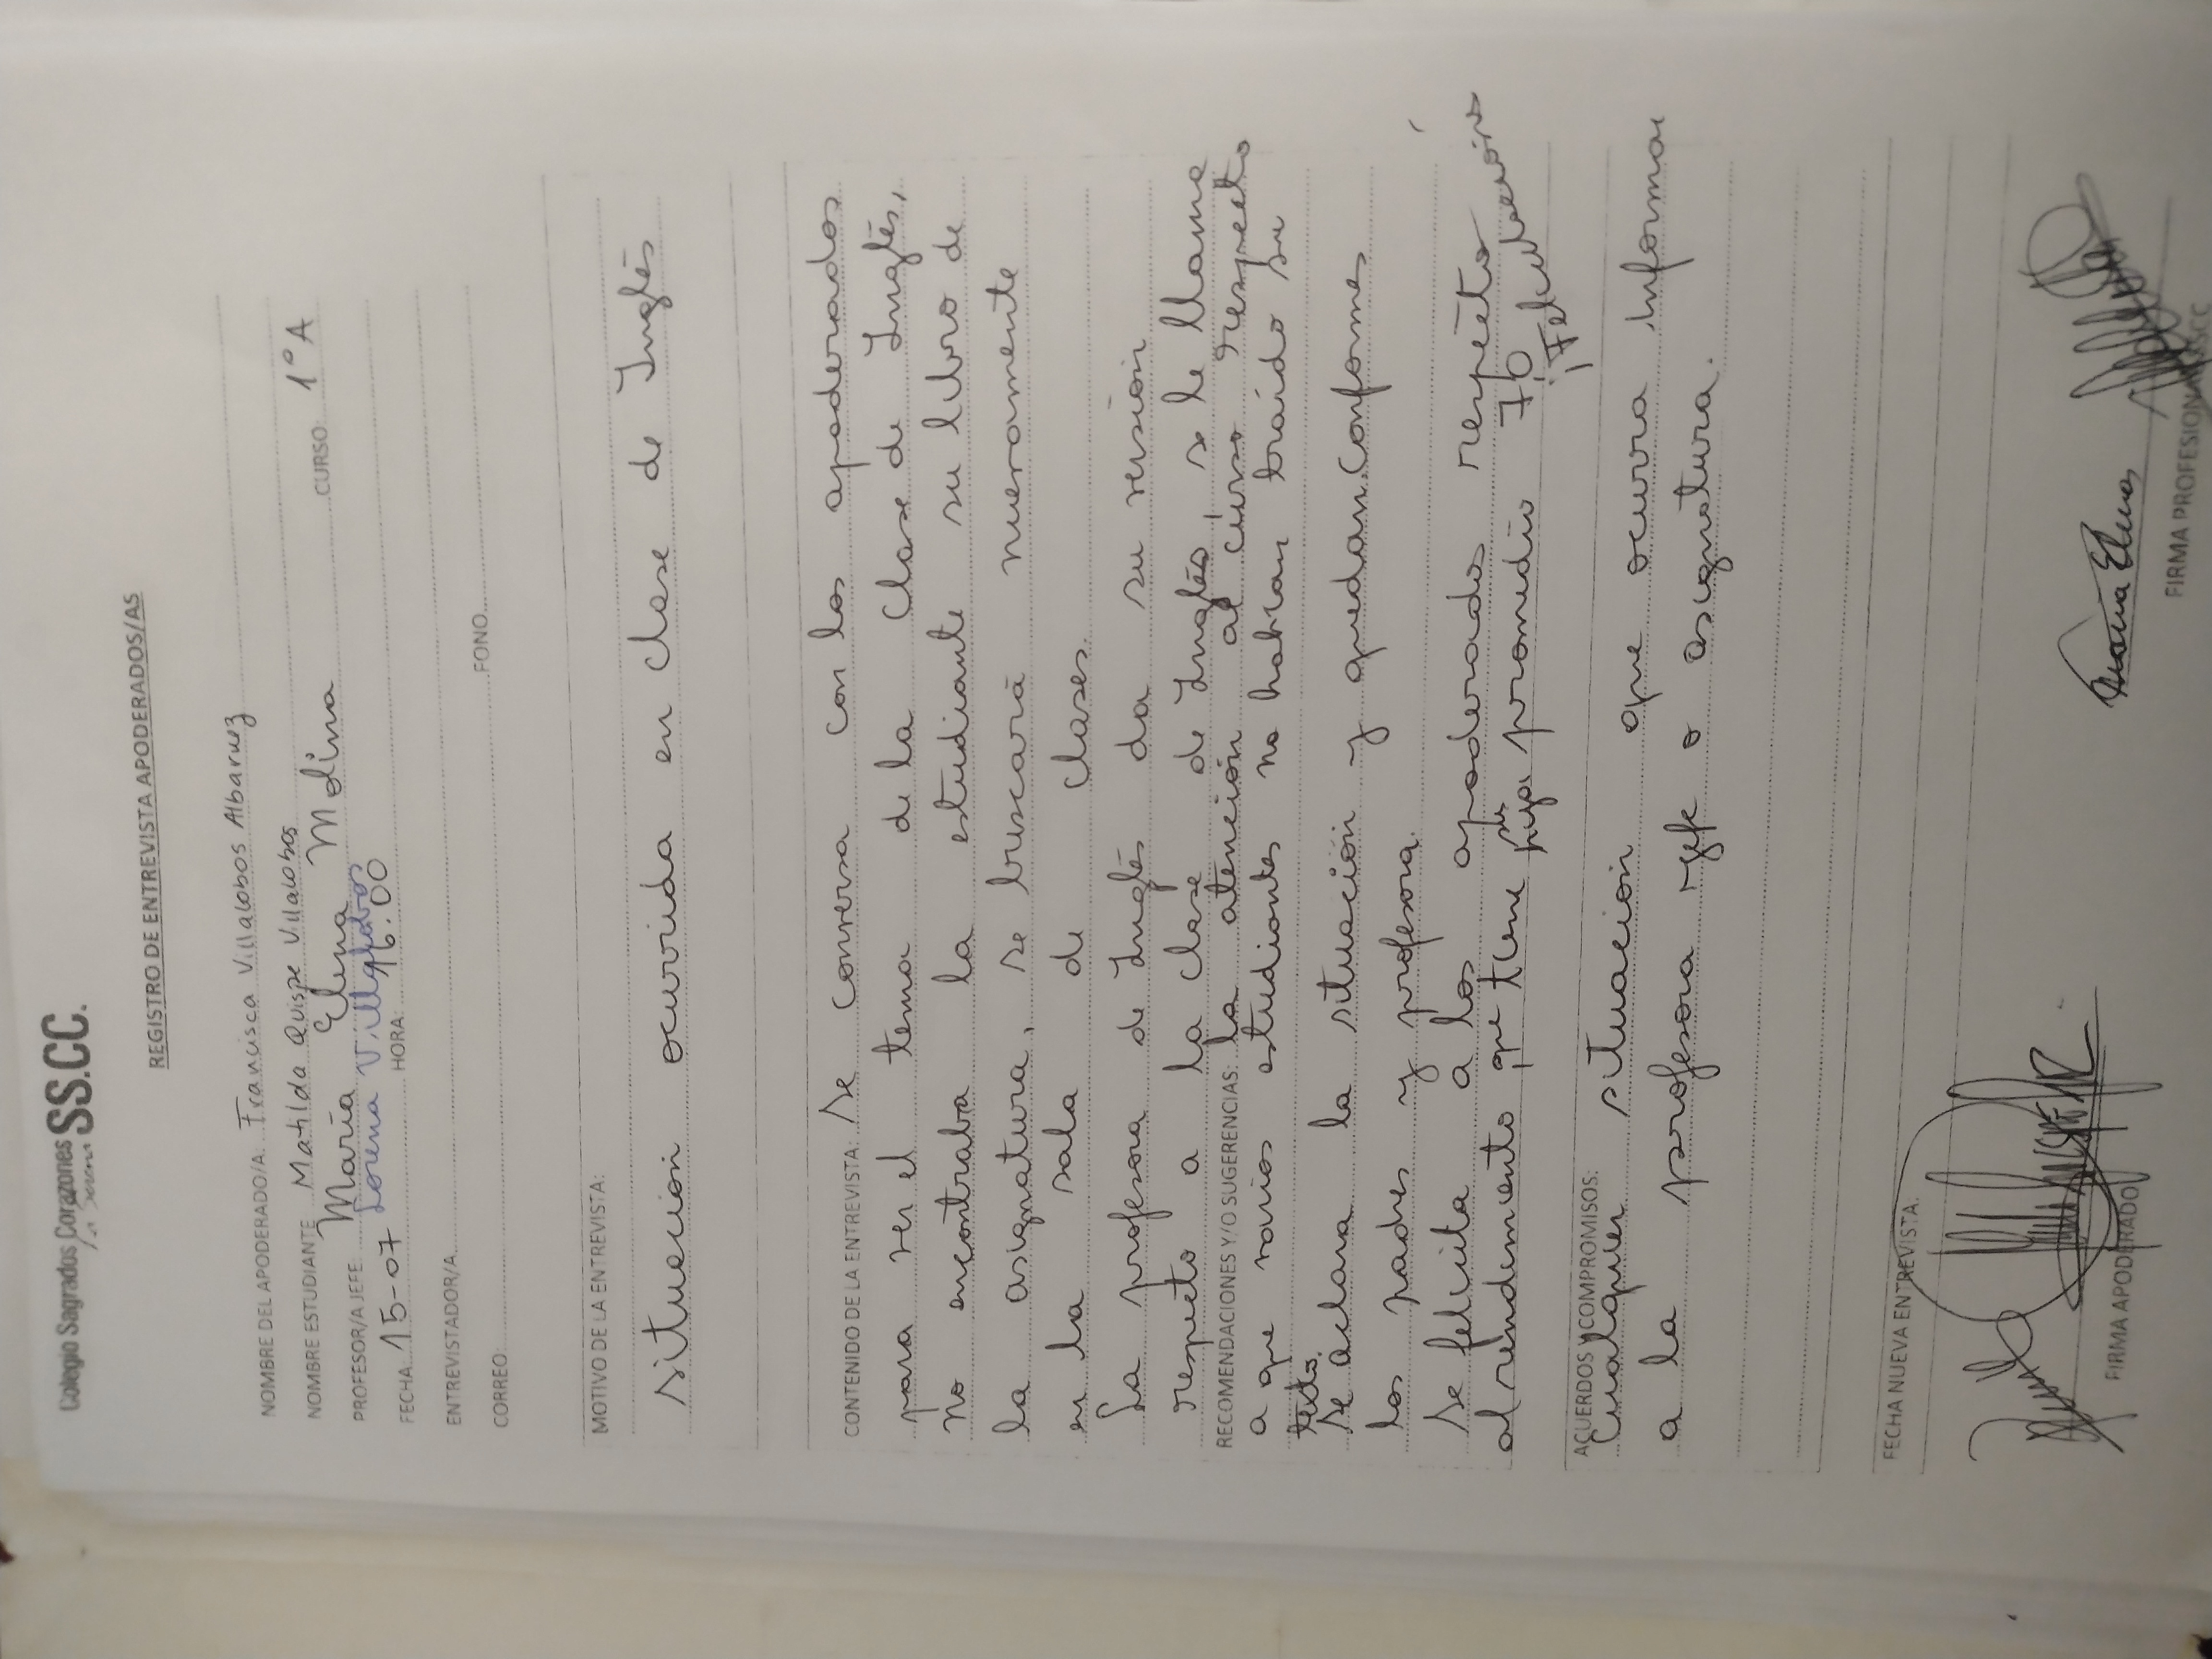 Colegio Sagrados Corazones SS.CC.
La Serena
REGISTRO DE ENTREVISTA APODERADOS/AS
NOMBRE DEL APODERADO/A: Francisca Villalobos Albarnez
NOMBRE ESTUDIANTE Matilda Quispe Villalobos CURSO: 1°A
PROFESOR/A JEFE: María Elena Molina
Lorena Villalobos
FECHA: 15-07 HORA: 16:00
ENTREVISTADOR/A
CORREO: FONO
MOTIVO DE LA ENTREVISTA:
situación ocurrida en clase de Inglés
CONTENIDO DE LA ENTREVISTA: Se conversa con los apoderados
para ver el tema de la clase de Inglés,
no encontraba la estudiante su libro de
la asignatura, se buscará nuevamente
en la sala de clases.
La profesora de Inglés da su versión
respeto a la clase de Inglés, se le llama
RECOMENDACIONES Y/O SUGERENCIAS: la atención al curso respecto
a que varios estudiantes no habían traído su
texto.
Se aclara la situación y quedan conformes
los padres y profesora.
Se felicita a los apoderados respeto
al rendimiento que tiene su hija promedio 7,0 ¡Felicitaciones
ACUERDOS Y COMPROMISOS:
Cualquier situación que ocurra informar
a la profesora jefe o asignatura.
FECHA NUEVA ENTREVISTA:
FIRMA APODERADO
María Elena
FIRMA PROFESIONAL SSCC